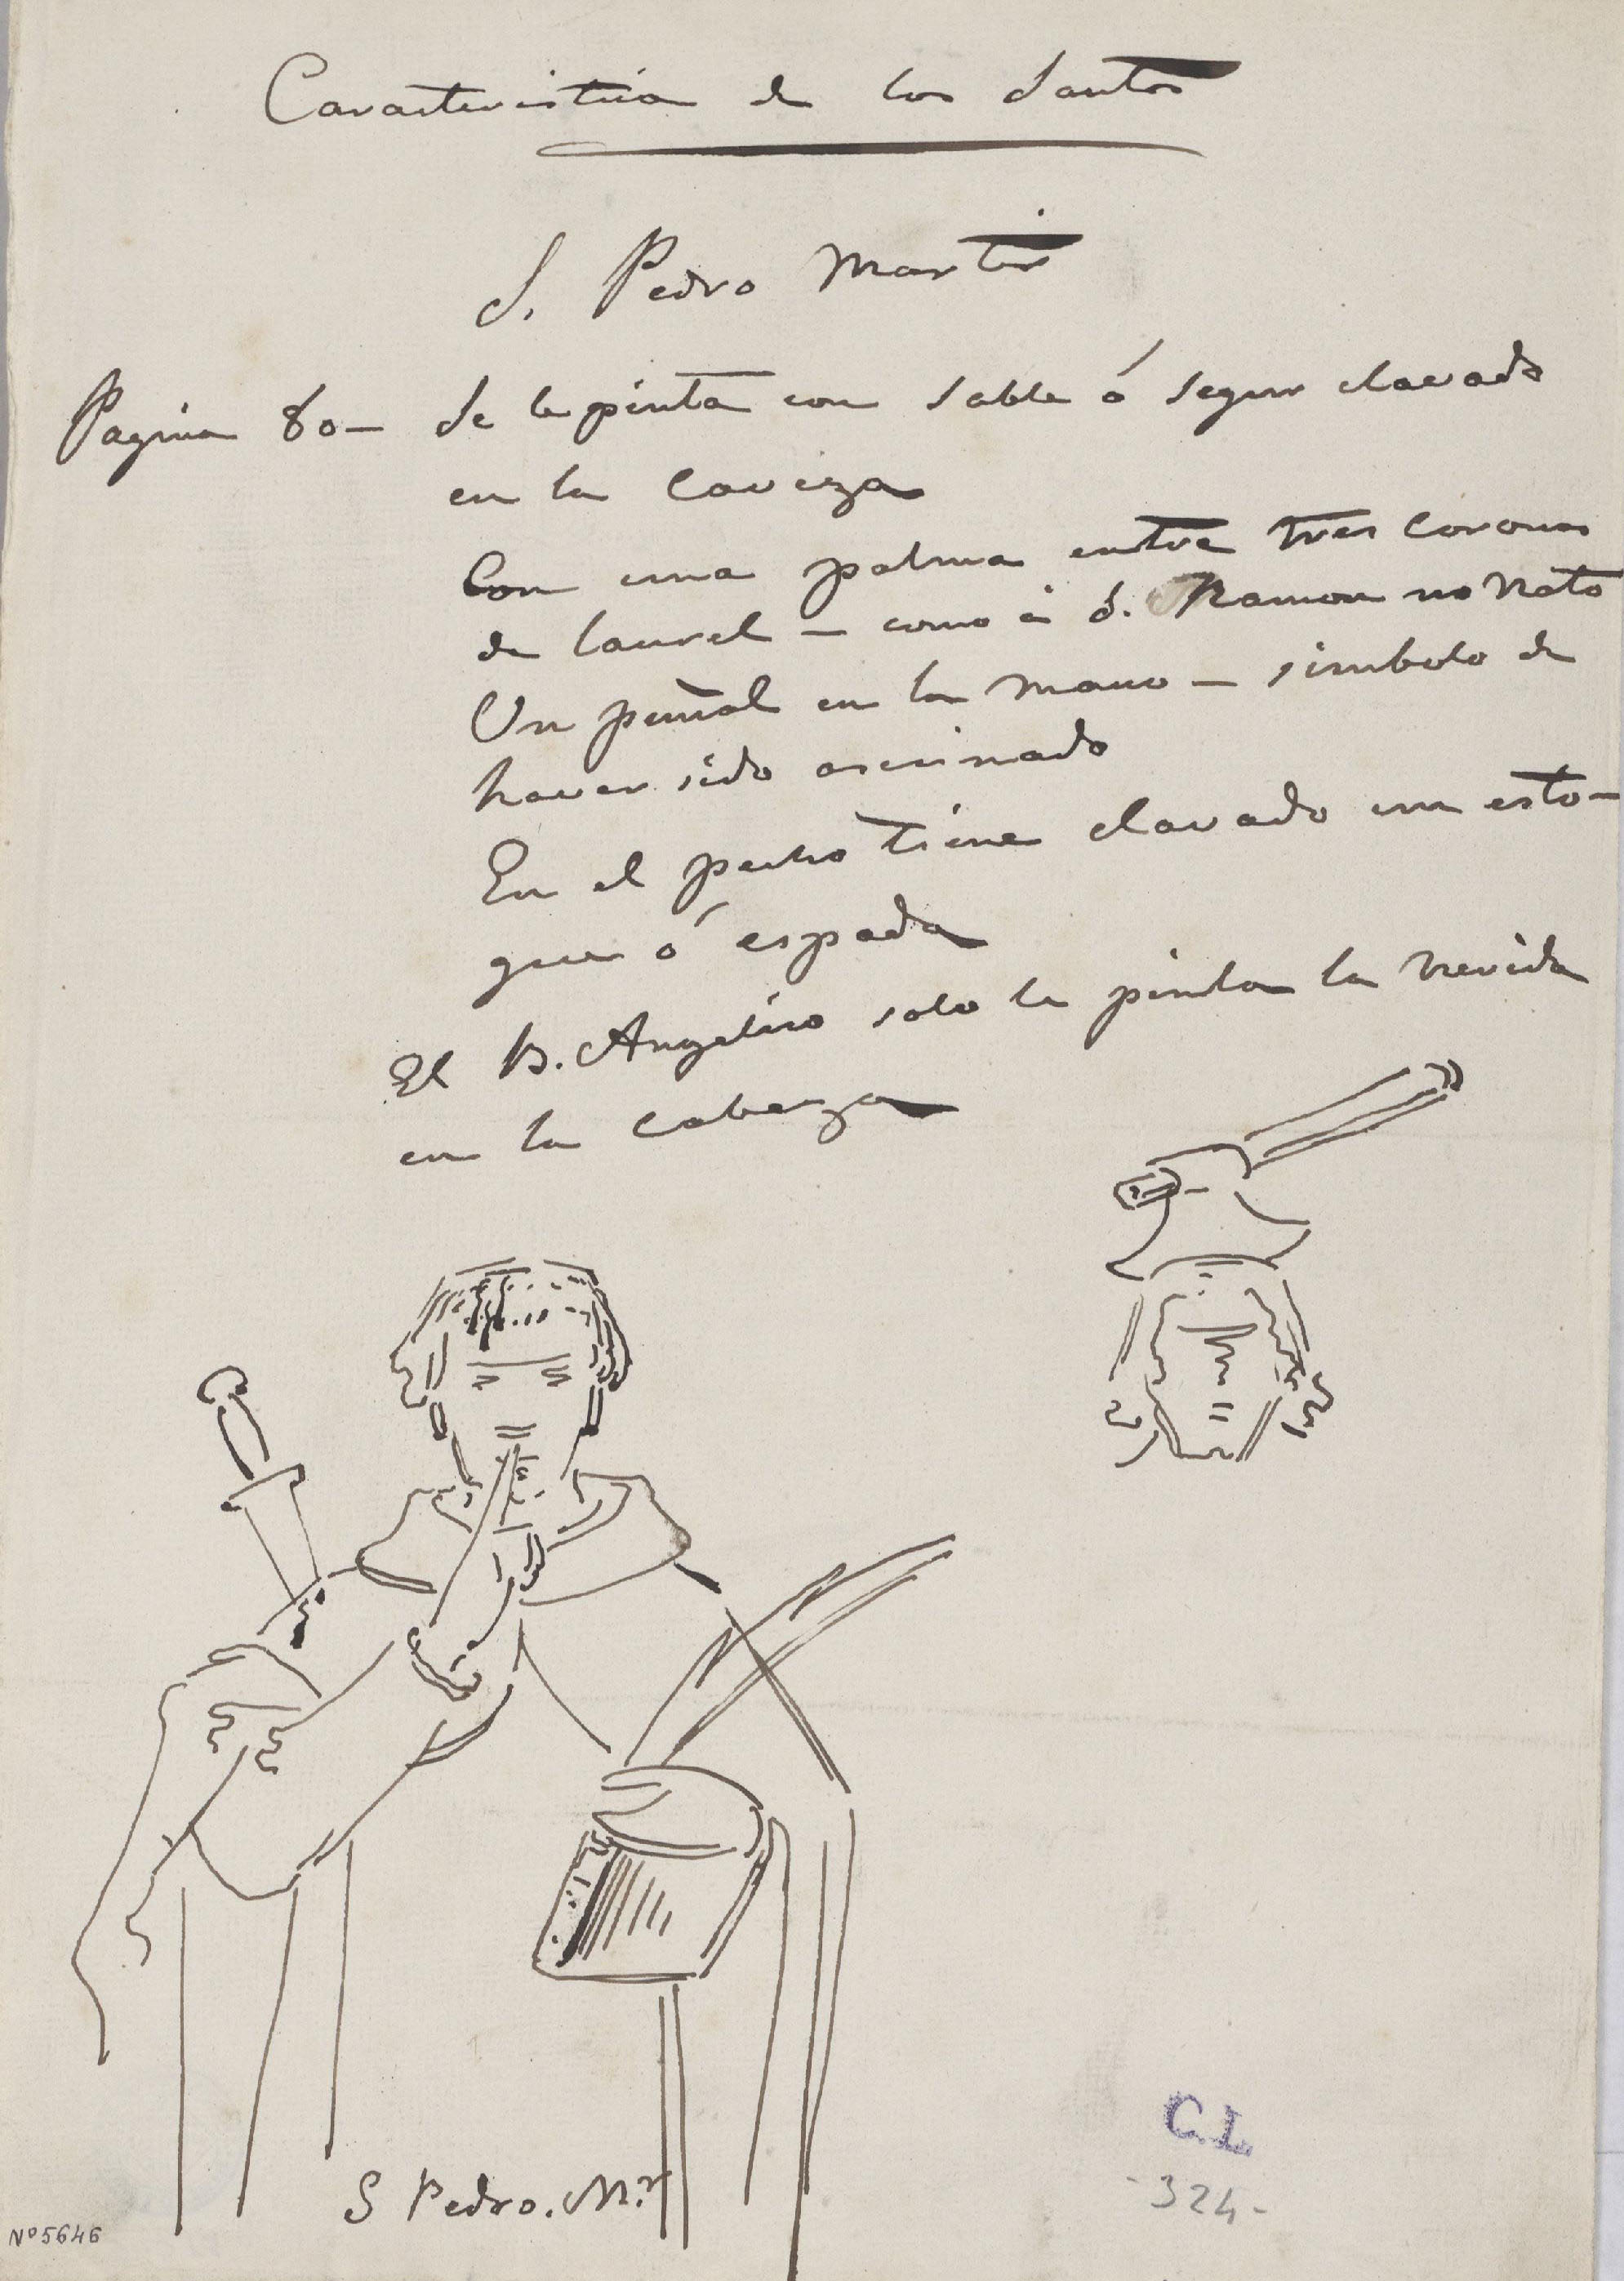 Caracteristica de los Santos
S. Pedro Martir
Pagina 80 - Se le pinta con sable ó segur clavado
en la caveza
Con una palma entre tres coronas
de laurel - como á S. Ramon no Nato
Un puñal en la mano - simbolo de
haver sido asesinado
En el pecho tiene clavado un esto-
que ó espada
El B. Angelico solo le pinta la herida
en la cabeza
S Pedro. Mr
C.L
- 324 -
Nº 5646